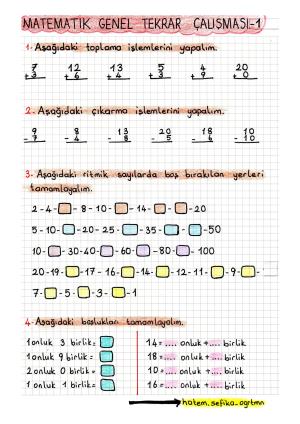 MATEMATİK GENEL TEKRAR ÇALIŞMASI-1
1-Aşağıdaki toplama işlemlerini yapalım.
7 12 13 5 4 20
+3 +6 +4 +3 +9 +0
2-Aşağıdaki çıkarma işlemlerini yapalım.
9 8 13 20 18 10
-7 -4 -8 -5 -4 -10
3-Aşağıdaki ritmik sayılarda boş bırakılan yerleri
tamamlayalım.
2-4-□-8-10-□-14-□-□-20
5-10-□-20-25-□-35-□-□-50
10-□-30-40-□-60-□-80-□-100
20-19-□-17-16-□-14-□-12-11-□-9-□-
7-□-5-□-3-□-1
4-Aşağıdaki boşlukları tamamlayalım.
1 onluk 3 birlik=□ 14=.... onluk+.... birlik
1 onluk 9 birlik=□ 18=.... onluk+.... birlik
2 onluk 0 birlik=□ 10=.... onluk+.... birlik
1 onluk 1 birlik=□ 16=.... onluk+.... birlik
hatem_sefika_ogrtmn